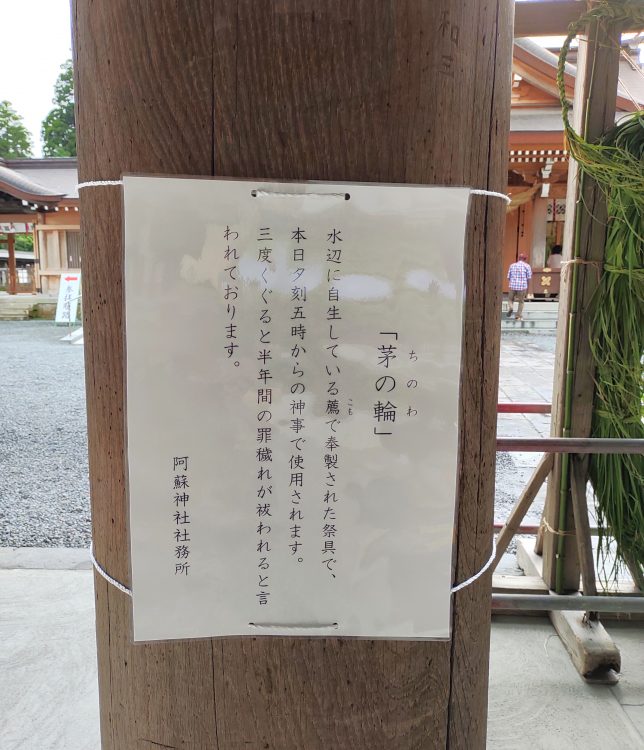 「茅の輪」
ちのわ
水辺に自生している薦で奉製された祭具で、
こも
本日夕刻五時からの神事で使用されます。
三度くぐると半年間の罪穢れが祓われると言
われております。
阿蘇神社社務所